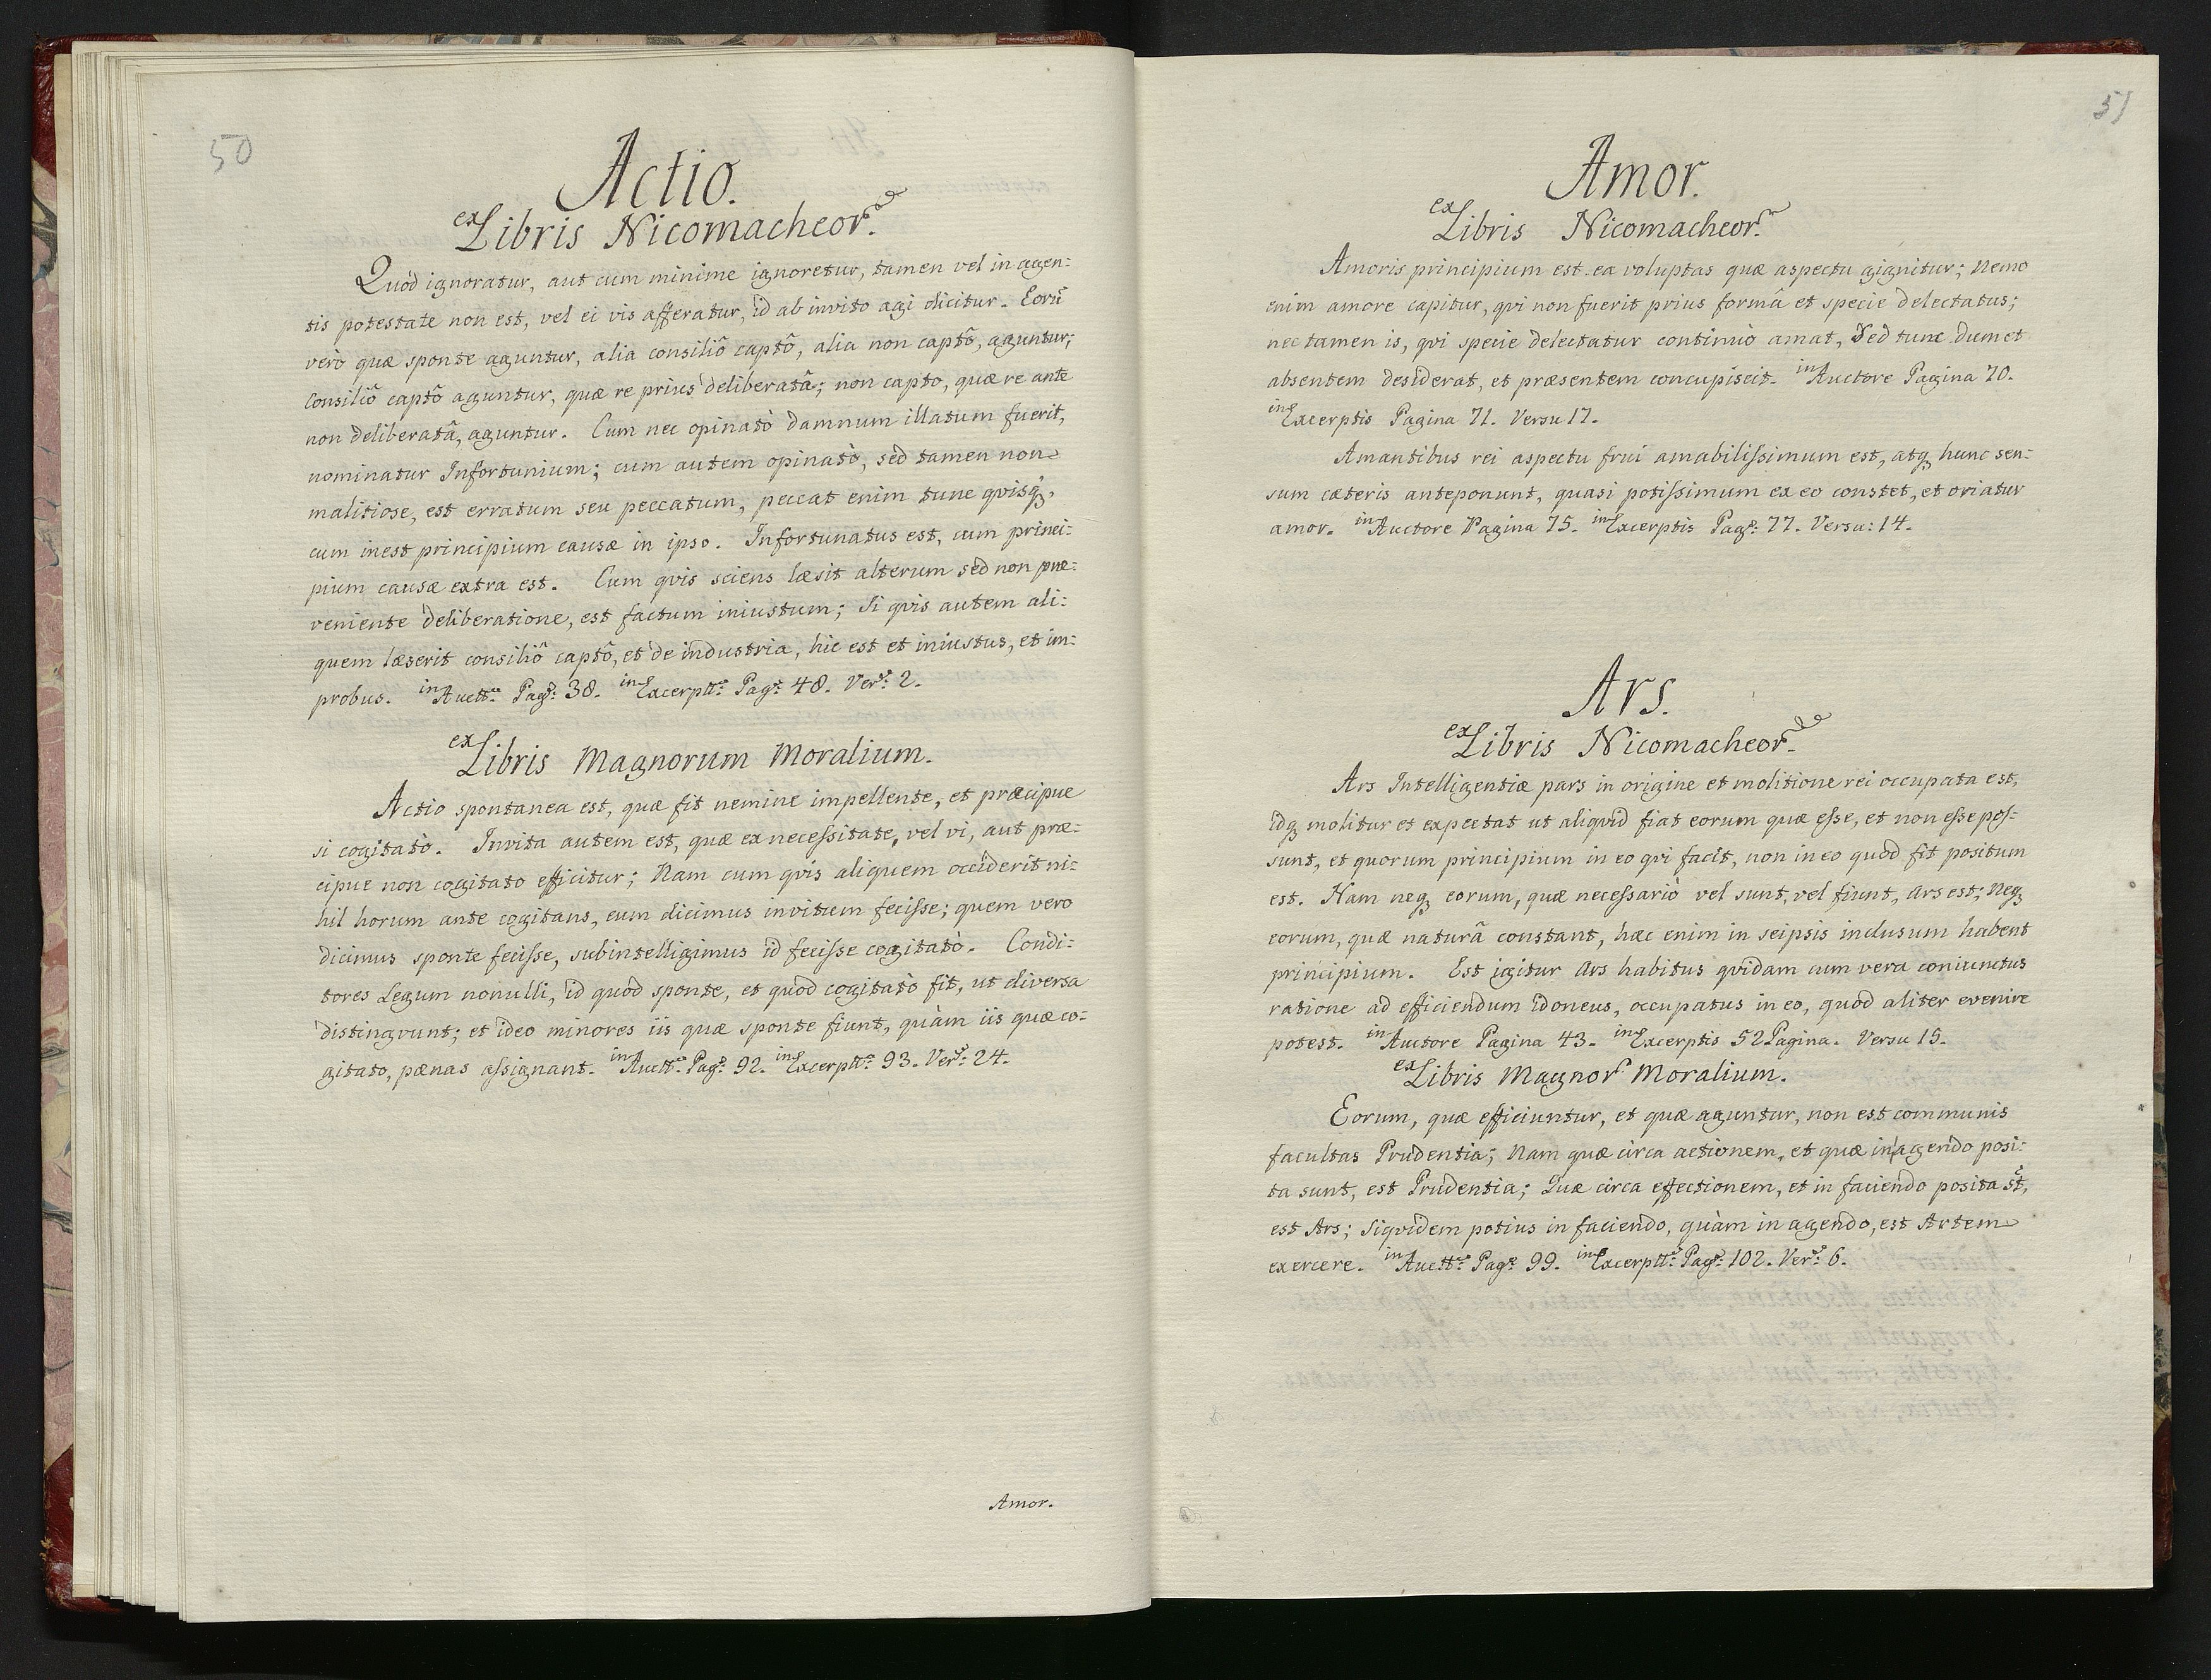 50
Actio.
ex Libris Nicomacheor.
Quod ignoratur, aut cum minime ignoretur, tamen vel in agen:
tis potestate non est, vel ei vis afferatur, id ab invito agi dicitur. Eorũ
verò quæ sponte aguntur, alia consiliô captô, alia non captô, aguntur;
Consiliô captô aguntur, quæ re prius deliberatâ; non capto, quæ re ante
non deliberatâ, aguntur. Cum nec opinatò damnum illatum fuerit,
nominatur Infortunium; cum autem opinatò, sed tamen non
malitiose, est erratum seu peccatum, peccat enim tunc qvisq,
cum inest principium causæ in ipso. Infortunatus est, cum princi:
pium causæ extra est. Cum qvis sciens læsit alterum sed non præ:
veniente deliberatione, est factum iniustum; Si qvis autem ali:
quem læserit consiliô captô, et de industria, hic est et iniustus, et im:
probus. in Auctr: Pag: 38. in Excerptr: Pag: 48. Ver: 2.
ex Libris Magnorum Moralium.
Actio spontanea est, quæ fit nemine impellente, et præcipue
si cogitatò. Invita autem est, quæ ex necessitate, vel vi, aut præ:
cipue non cogitato efficitur; Nam cum qvis aliquem occiderit ni:
hil horum ante cogitans, eum dicimus invitum fecisse; quem vero
dicimus sponte fecisse, subintelligimus id fecisse cogitatò. Condi:
tores Legum nonulli, id quod sponte, et quod cogitatò fit, ut diversa
distingvunt; et ideo minores iis quæ sponte fiunt, quàm iis quæ co:
gitato, pænas assignant. in Auctr: Pag: 92. in Excerptr: 93. Ver: 24.
Amor.
51
Amor.
ex Libris Nicomacheor.
Amoris principium est ea voluptas quæ aspectu gignitur; Nemo
enim amore capitur, qvi non fuerit prius formâ et specie delectatus;
nec tamen is, qvi specie delectatur continuò amat, Sed tunc dum et
absentem desiderat, et præsentem concupiscit. in Auctore Pagina 70.
in Excerptis Pagina 71. Versu 17.
Amantibus rei aspectu frui amabilissimum est, atq hunc sen:
sum cæteris anteponunt, quasi potissimum ex eo constet, et oriatur
amor. in Auctore Pagina 75. in Excerptis Pag: 77. Versu: 14.
Ars.
ex Libris Nicomacheor.
Ars Intelligentiæ pars in origine et molitione rei occupata est,
idq molitur et expectat ut aliqvid fiat eorum quæ esse, et non esse pos:
sunt, et quorum principium in eo qvi facit, non in eo quod fit positum
est. Nam neq eorum, quæ necessariò vel sunt, vel fiunt, Ars est; Neq
eorum, quæ naturâ constant, hæc enim in seipsis inclusum habent
principium. Est igitur Ars habitus qvidam cum vera coniunctus
ratione ad efficiendum idoneus, occupatus in eo, quod aliter evenire
potest. in Auctore Pagina 43. in Excerptis 52 Pagina. Versu 15.
ex Libris Magnor Moralium.
Eorum, quæ efficiuntur, et quæ aguntur, non est communis
facultas Prudentia; Nam quæ circa actionem, et quæ in agendo posi:
ta sunt, est Prudentia; Quæ circa effectionem, et in faciendo posita st̃,
est Ars; Siqvidem potius in faciendo, quàm in agendo, est Artem
exercere. in Auctr: Pag: 99. in Excerptr: Pag: 102. Ver: 6.